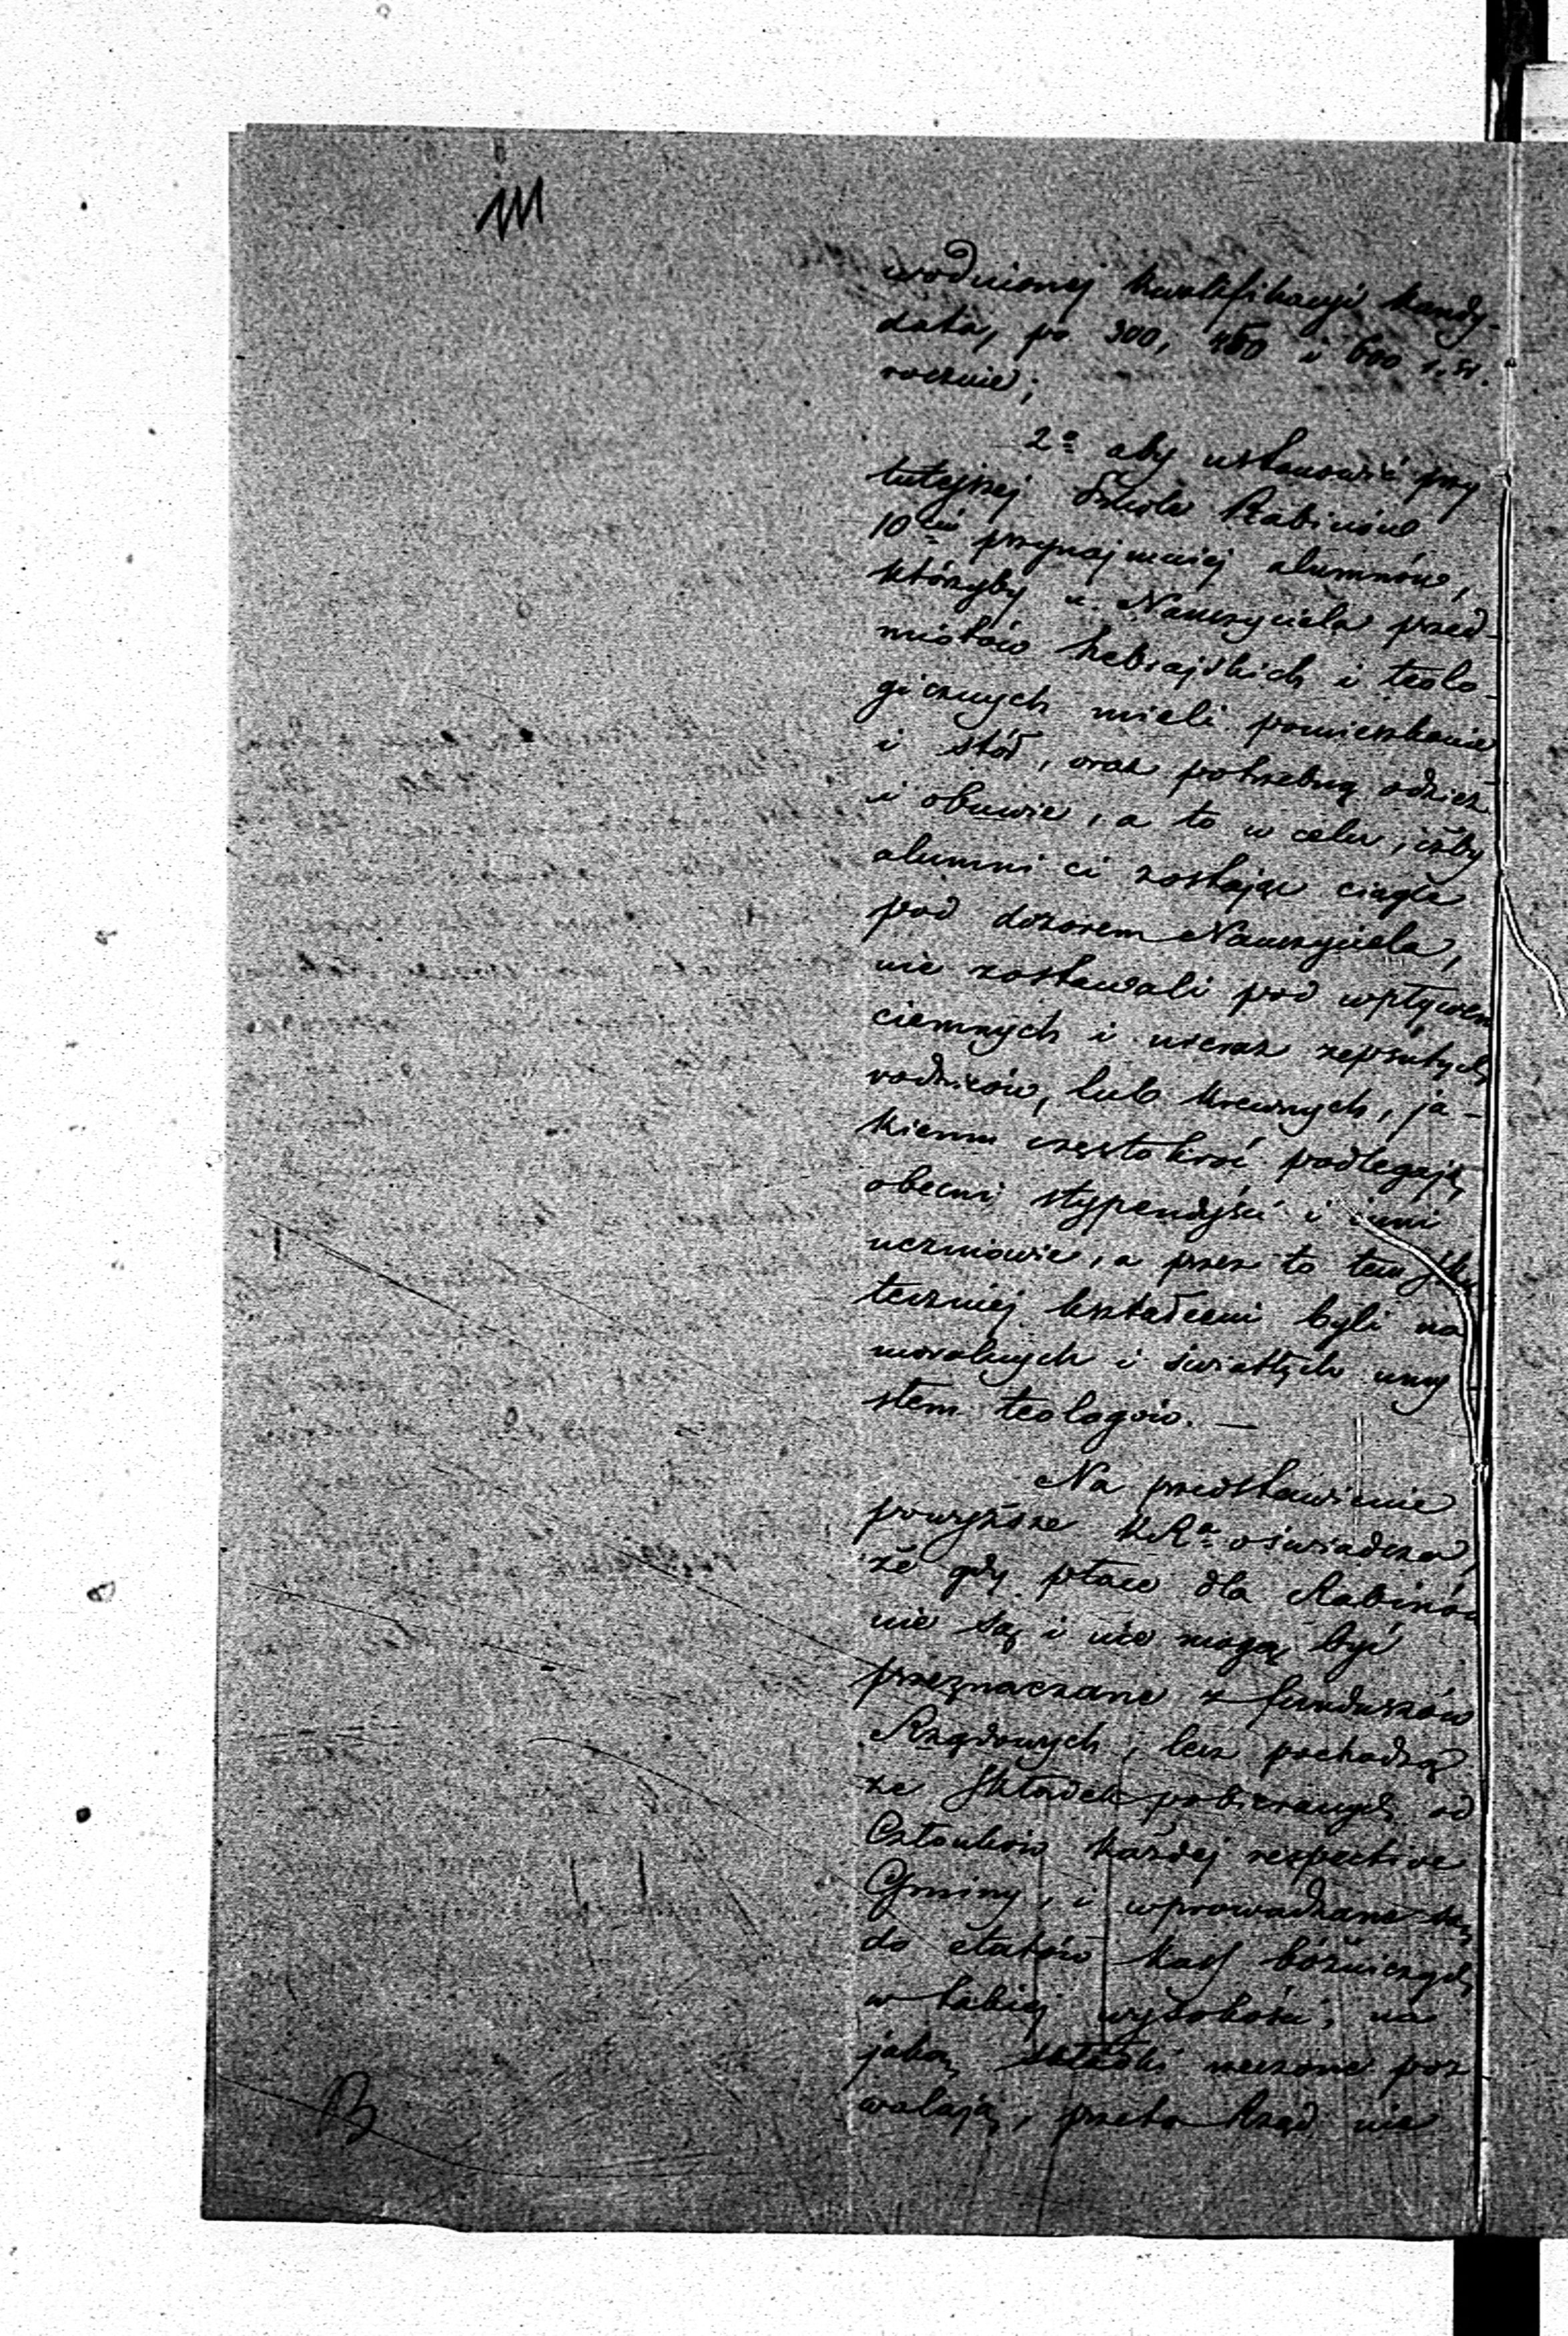 wodnionej kwalifikacyi kandy-
data, po 300, 450 i 600 r. sr.
rocznie;
2o aby ustanowić przy
tutejszej Szkole Rabinów
10ciu przynajmniej alumnów,
którzyby u Nauczyciela przed-
miotów hebrajskich i teolo-
gicznych mieli pomieszkanie
i stół, oraz potrzebną odzież
i obuwie, a to w celu, iżby
alumni ci zostając ciągle
pod dozorem Nauczyciela,
nie zostawali pod wpływem
ciemnych i nieraz zepsutych
rodziców, lub krewnych, ja-
kiemu częstokroć podlegają
obecni stypendyści i inni
uczniowie, a przez to tem sku
teczniej kształceni byli na
moralnych i światłych umy
słem teologów. —
Na przedstawienie
powyższe KRa oświadcza,
że gdy płace dla Rabinów
nie są i nie mogą być
przeznaczane z funduszów
Rządowych, lecz pochodzą
ze składek pobieranych od
Członków każdej respective
Gminy, i wprowadzane są
do etatów kass bóżniczych
w takiej wysokości, na
jaką składki rzeczone poz
walają, przeto Rząd nie